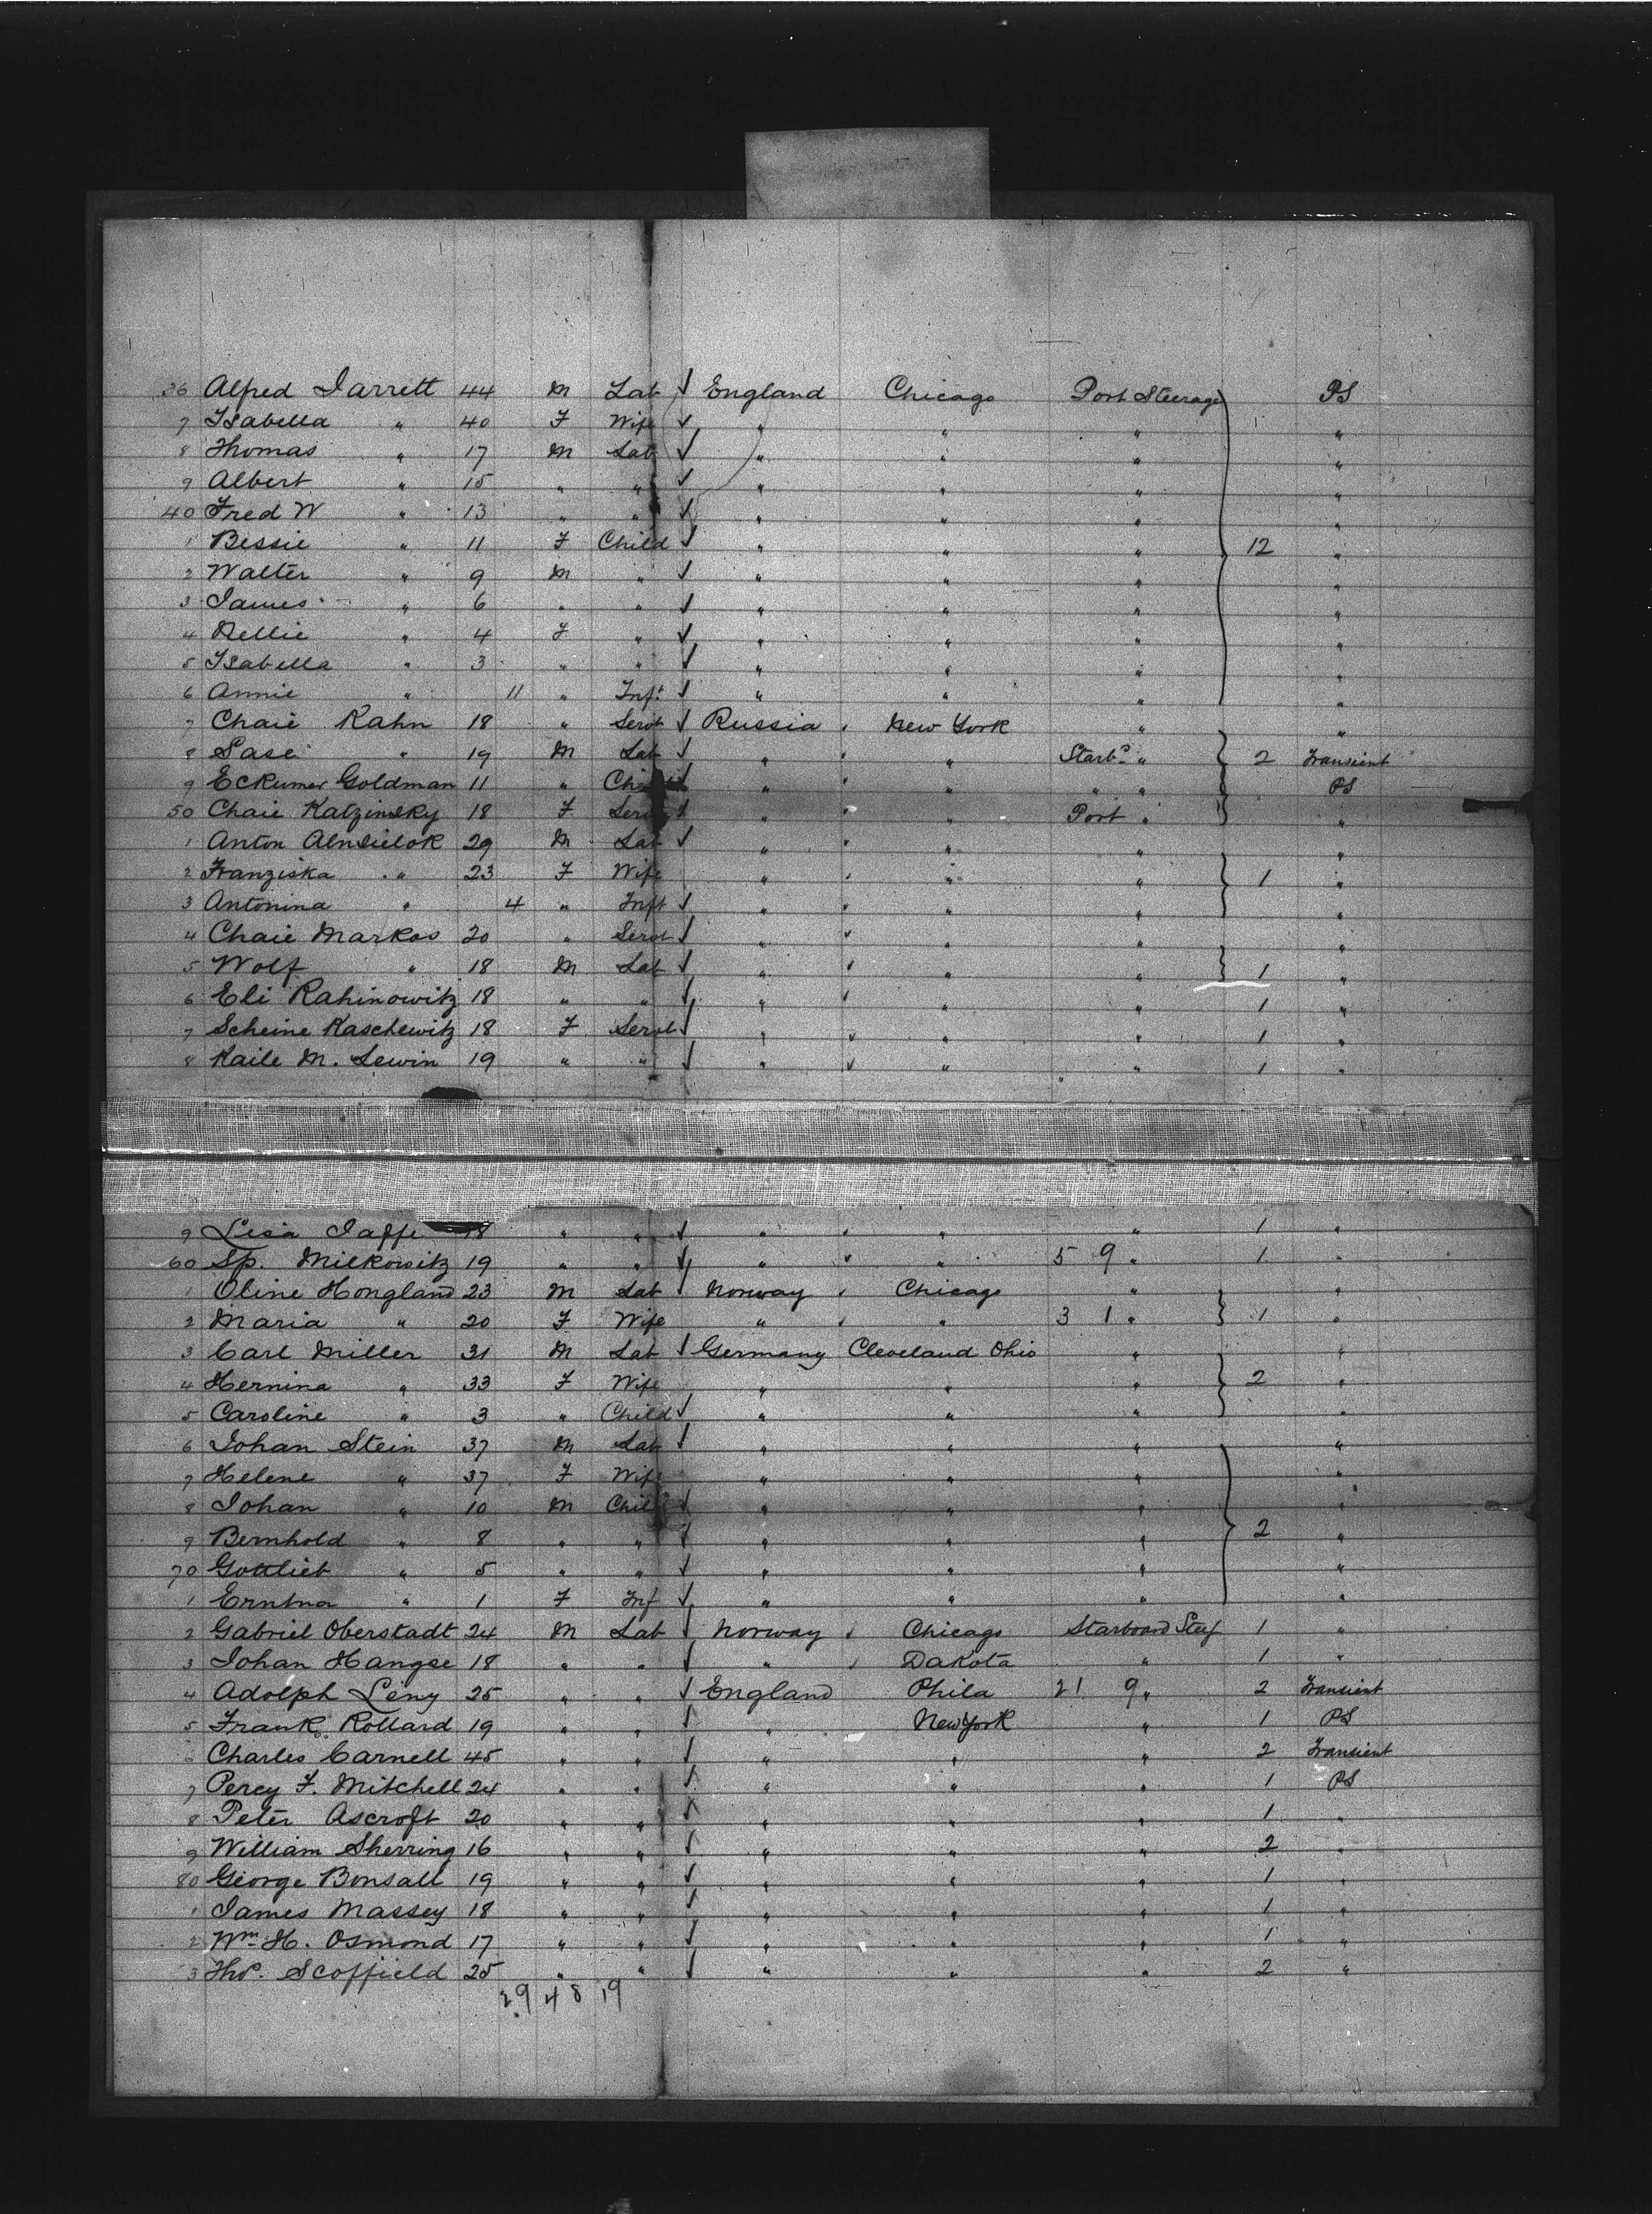 36 Alfred Jarrett 44 M Lab ✓ England Chicago Port Steerage PS
7 Isabella " 40 F Wife ✓ " " " "
8 Thomas " 17 M Lab ✓ " " " "
9 Albert " 15 " " ✓ " " " "
40 Fred W " 13 " " ✓ " " " "
1 Bessie " 11 F Child ✓ " " " 12 "
2 Walter " 9 M " ✓ " " " "
3 James " 6 " " ✓ " " " "
4 Nellie " 4 F " ✓ " " " "
5 Isabella " 3 " " ✓ " " " "
6 Annie " 11 " Inft ✓ " " " "
7 Chaie Kahn 18 " Servt ✓ Russia New York " "
8 Sase " 19 M Lab ✓ " " Starbd " 2 Transient
9 Eckumer Goldman 11 " Child " " " " PS
50 Chaie Katzinsky 18 F Serv ✓ " " Port " "
1 Anton 29 M Lab ✓ " " " "
2 Franziska " 23 F Wife " " " 1 "
3 Antonina " 4 " Inft ✓ " " " "
4 Chaie Markos 20 " Servt ✓ " " " "
5 Wolf " 18 M Lab ✓ " " " 1 "
6 Eli Rahinowitz 18 " " ✓ " " " 1 "
7 Scheine Kaschewitz 18 F Servt ✓ " " " 1 "
8 Kaile M. Lewin 19 " " ✓ " " " 1 "
9 Lesa Jaffe 18 " " ✓ " " " 1 "
60 Sp. Milkowitz 19 " " ✓ " " 5 9 " 1 "
1 Oline Hongland 23 M Lab ✓ Norway Chicago " "
2 Maria " 20 F Wife " " 3 1 " 1 "
3 Carl Miller 31 M Lab ✓ Germany Cleveland Ohio " "
4 Hernina " 33 F Wife " " " 2 "
5 Caroline " 3 " Child ✓ " " " "
6 Johan Stein 37 M Lab ✓ " " " "
7 Helene " 37 F Wife " " " "
8 Johan " 10 M Child ✓ " " " "
9 Bernhold " 8 " " ✓ " " " 2 "
70 Gottlieb " 5 " " ✓ " " " "
1 Erntna " 1 F Inf ✓ " " " "
2 Gabriel Oberstadt 24 M Lab ✓ Norway Chicago Starboard Steeg 1 "
3 Johan Hangse 18 " " ✓ " Dakota " 1 "
4 Adolph Leny 25 " " ✓ England Phila 21 9 " 2 Transient
5 Frank Rollard 19 " " ✓ " New York " 1 PS
6 Charles Carnell 45 " " ✓ " " " 2 Transient
7 Percy F. Mitchell 24 " " ✓ " " " 1 PS
8 Peter Ascroft 20 " " ✓ " " " 1 "
9 William Sherring 16 " " ✓ " " " 2 "
80 George Bonsall 19 " " ✓ " " " 1 "
1 James Massey 18 " " ✓ " " " 1 "
2 Wm H. Osmond 17 " " ✓ " " " 1 "
3 Tho. Scoffield 25 " " ✓ " " " 2 "
29 4 8 19